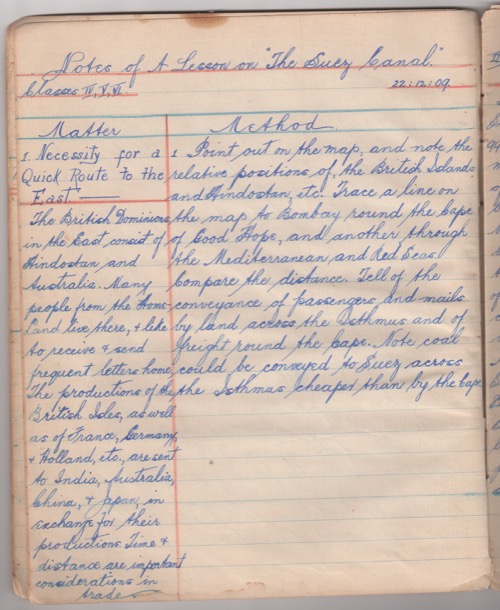 Notes of A Lesson on "The Suez Canal."
Classes IV, V, VI
22:12:09.
Matter
1. Necessity for a
Quick Route to the
East
The British Dominions
in the East consist of
Hindostan and
Australia. Many
people from the Home-
Land live there, & like
to receive & send
frequent letters home.
The productions of the
British Isles, as well
as of France, Germany,
& Holland, etc., are sent
to India, Australia,
China, & Japan, in
exchange for their
productions. Time &
distance are important
considerations in
trade
Method
1 Point out on the map, and note the
relative positions of, the British Islands
and Hindostan, etc. Trace a line on
the map to Bombay round the Cape
of Good Hope, and another through
the Mediterranean and Red Seas.
Compare the distance. Tell of the
conveyance of passengers and mails
by land across the Isthmus and of
freight round the Cape. Note coal
could be conveyed to Suez across
the Isthmus cheaper than by the Cape